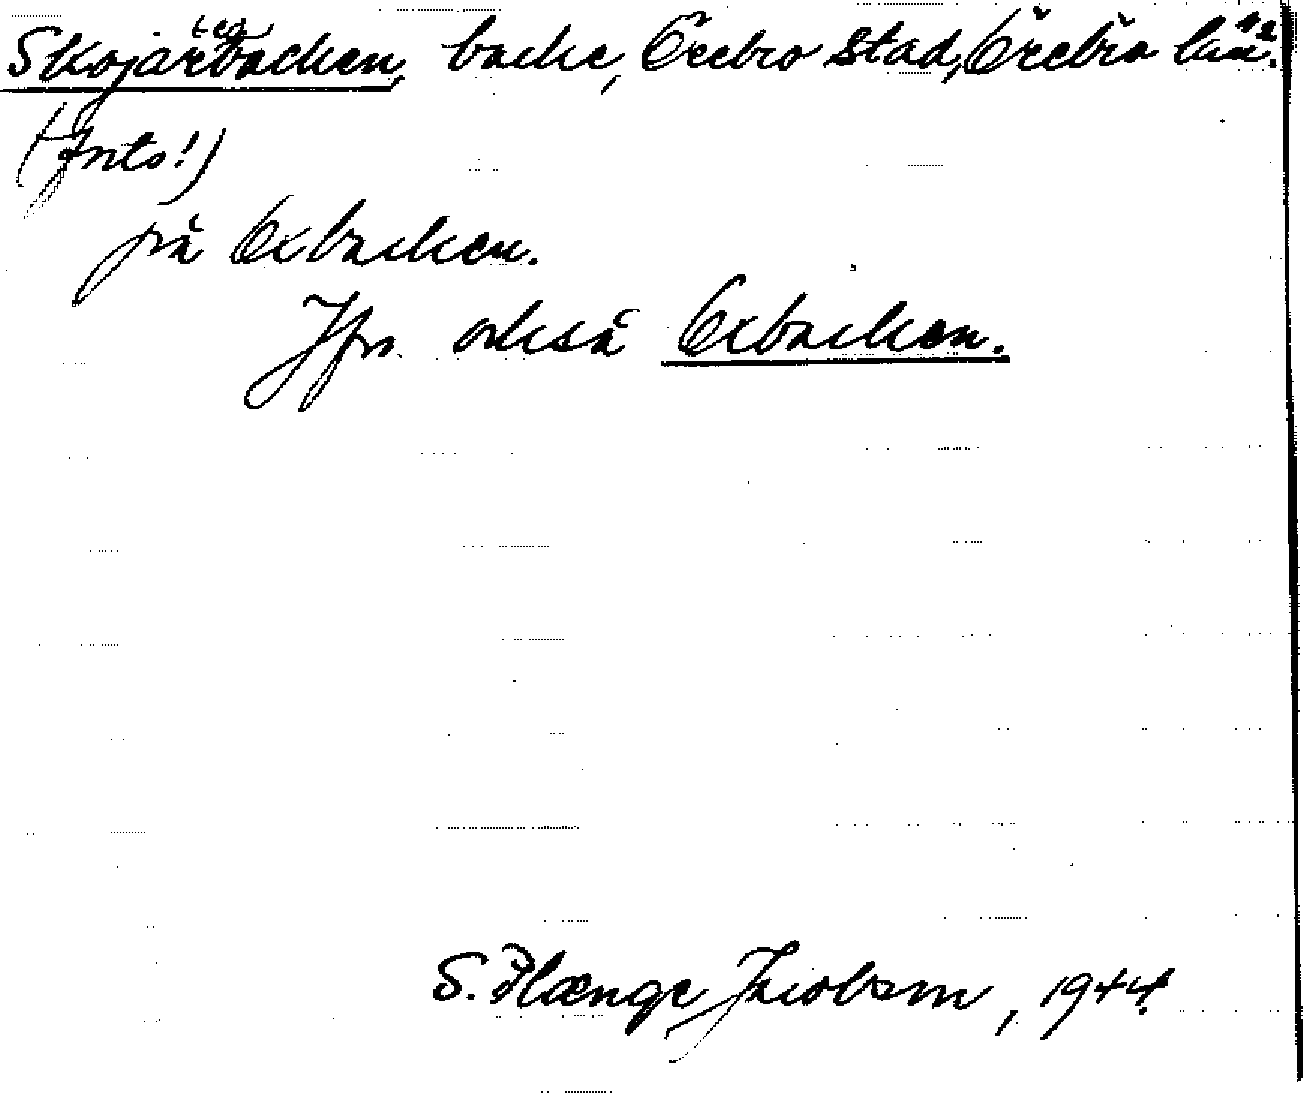 Skojarbacken, backe, Örebro stad, Örebro län.
på Oxbacken.
Jfr. också Oxbacken.
S. Plænge Jacobson, 1944.